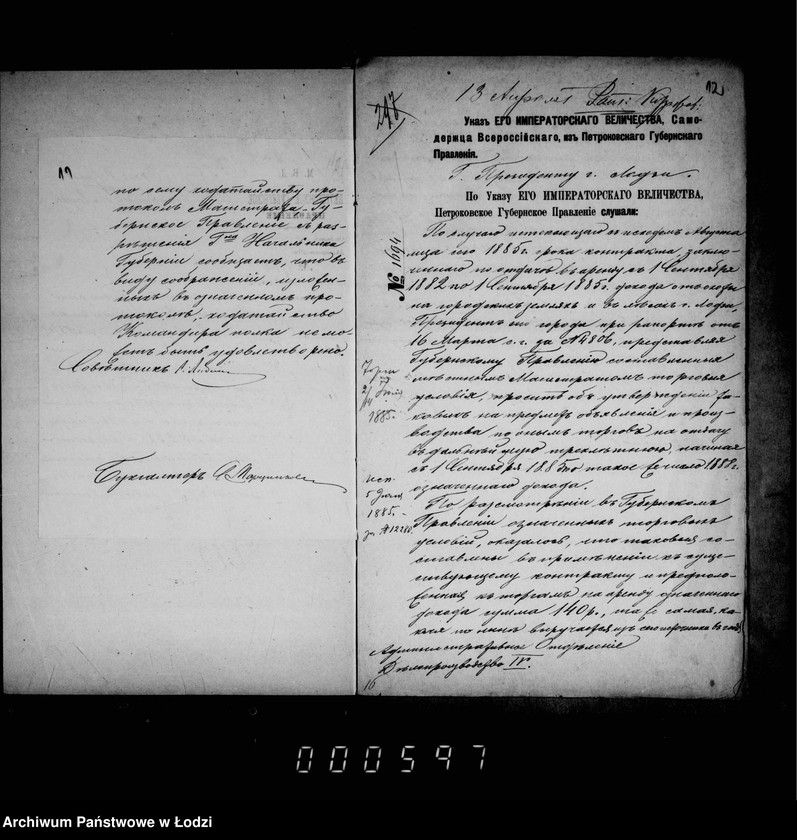 по сему ходатайству про-
токолъ Магистрата, Гу-
бернское Правленіе съ раз-
рѣшенія Гна Начальника
Губерніи сообщаетъ, что въ
виду соображеній, изложен-
ныхъ въ означенномъ про-
токолѣ, ходатайство
Командира полка не мо-
жетъ быть удовлетворено.
Совѣтникъ
Бухгалтеръ
12
13 Апрѣля
247
Указъ ЕГО ИМПЕРАТОРСКАГО ВЕЛИЧЕСТВА, Само-
держца Всероссійскаго, изъ Петроковскаго Губернскаго
Правленія.
Г. Президенту г. Лодзи.
По Указу ЕГО ИМПЕРАТОРСКАГО ВЕЛИЧЕСТВА,
Петроковское Губернское Правленіе слушали:
№ 1694
По случаю истекающаго съ исходомъ Августа
м-ца сего 1885 г. срока контракта, заклю-
ченнаго по отдачѣ въ аренду съ 1 Сентября
1882 по 1 Сентября 1885 г. дохода отъ охоты
на городскихъ земляхъ и въ лѣсахъ г. Лодзи,
Президентъ сего города при рапортѣ отъ
16 Марта с. г. за № 4806, представляя
Губернскому Правленію составленныя
мѣстнымъ Магистратомъ торговыя
условія, проситъ объ утвержденіи та-
ковыхъ на предметъ объявленія и произ-
водства по онымъ торговъ на отдачу
въ дальнѣйшую трехлѣтнюю, начиная
съ 1 Сентября 1885 по такое же число 1888 г.
означеннаго дохода.
По разсмотрѣніи въ Губернскомъ
Правленіи означенныхъ торговыхъ
условій оказалось, что таковыя со-
ставлены въ примѣненіи къ суще-
ствующему контракту и предполо-
женная къ торгамъ на аренду означеннаго
дохода сумма 140 р., та же самая, ка-
кая по нынѣ выручается изъ
Торги
1885.
исп.
1885.
за № 12280.
Административное Отдѣленіе
Дѣлопроизводство IV.
16
000597
Archiwum Państwowe w Łodzi